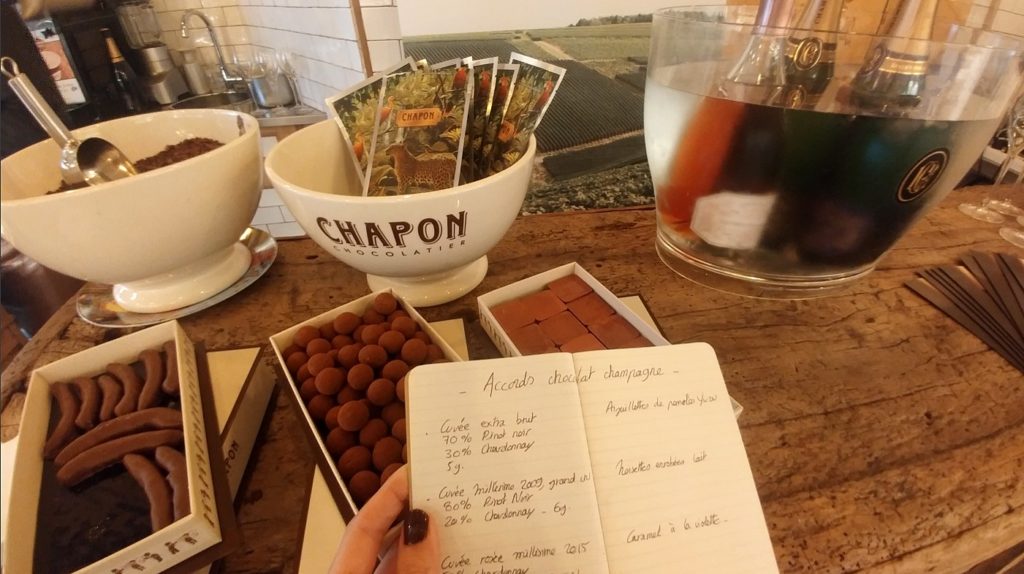 CHAPON
CHAPON
CHOCOLATIER
- Accords chocolat champagne -
. Cuvée extra brut
70% Pinot noir
30% Chardonnay
5g.
Aiguillettes de pamelos Yuzu
. Cuvée millésime 2009, grand cru
80% Pinot Noir
20% Chardonnay - 6g.
Noisettes enrobées lait
Cuvée rosée millésime 2015
Chardonnay
Caramel à la violette -
CHAPON